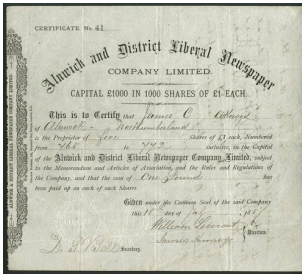 CERTIFICATE No. 41
Alnwick and District Liberal Newspaper
COMPANY LIMITED.
CAPITAL £1000 IN 1000 SHARES OF £1 EACH.
This is to Certify that James C
of Alnwick Northumberland
is the Proprietor of Shares of £1 each, Numbered
from to inclusive, in the Capital
of the Alnwick and District Liberal Newspaper Company, Limited, subject
to the Memorandum and Articles of Association, and the Rules and Regulations of
the Company, and that the sum of One Pound has
been paid up on each of such Shares.
Given under the Common Seal of the said Company
this day of
William
Directors
James
Secretary.